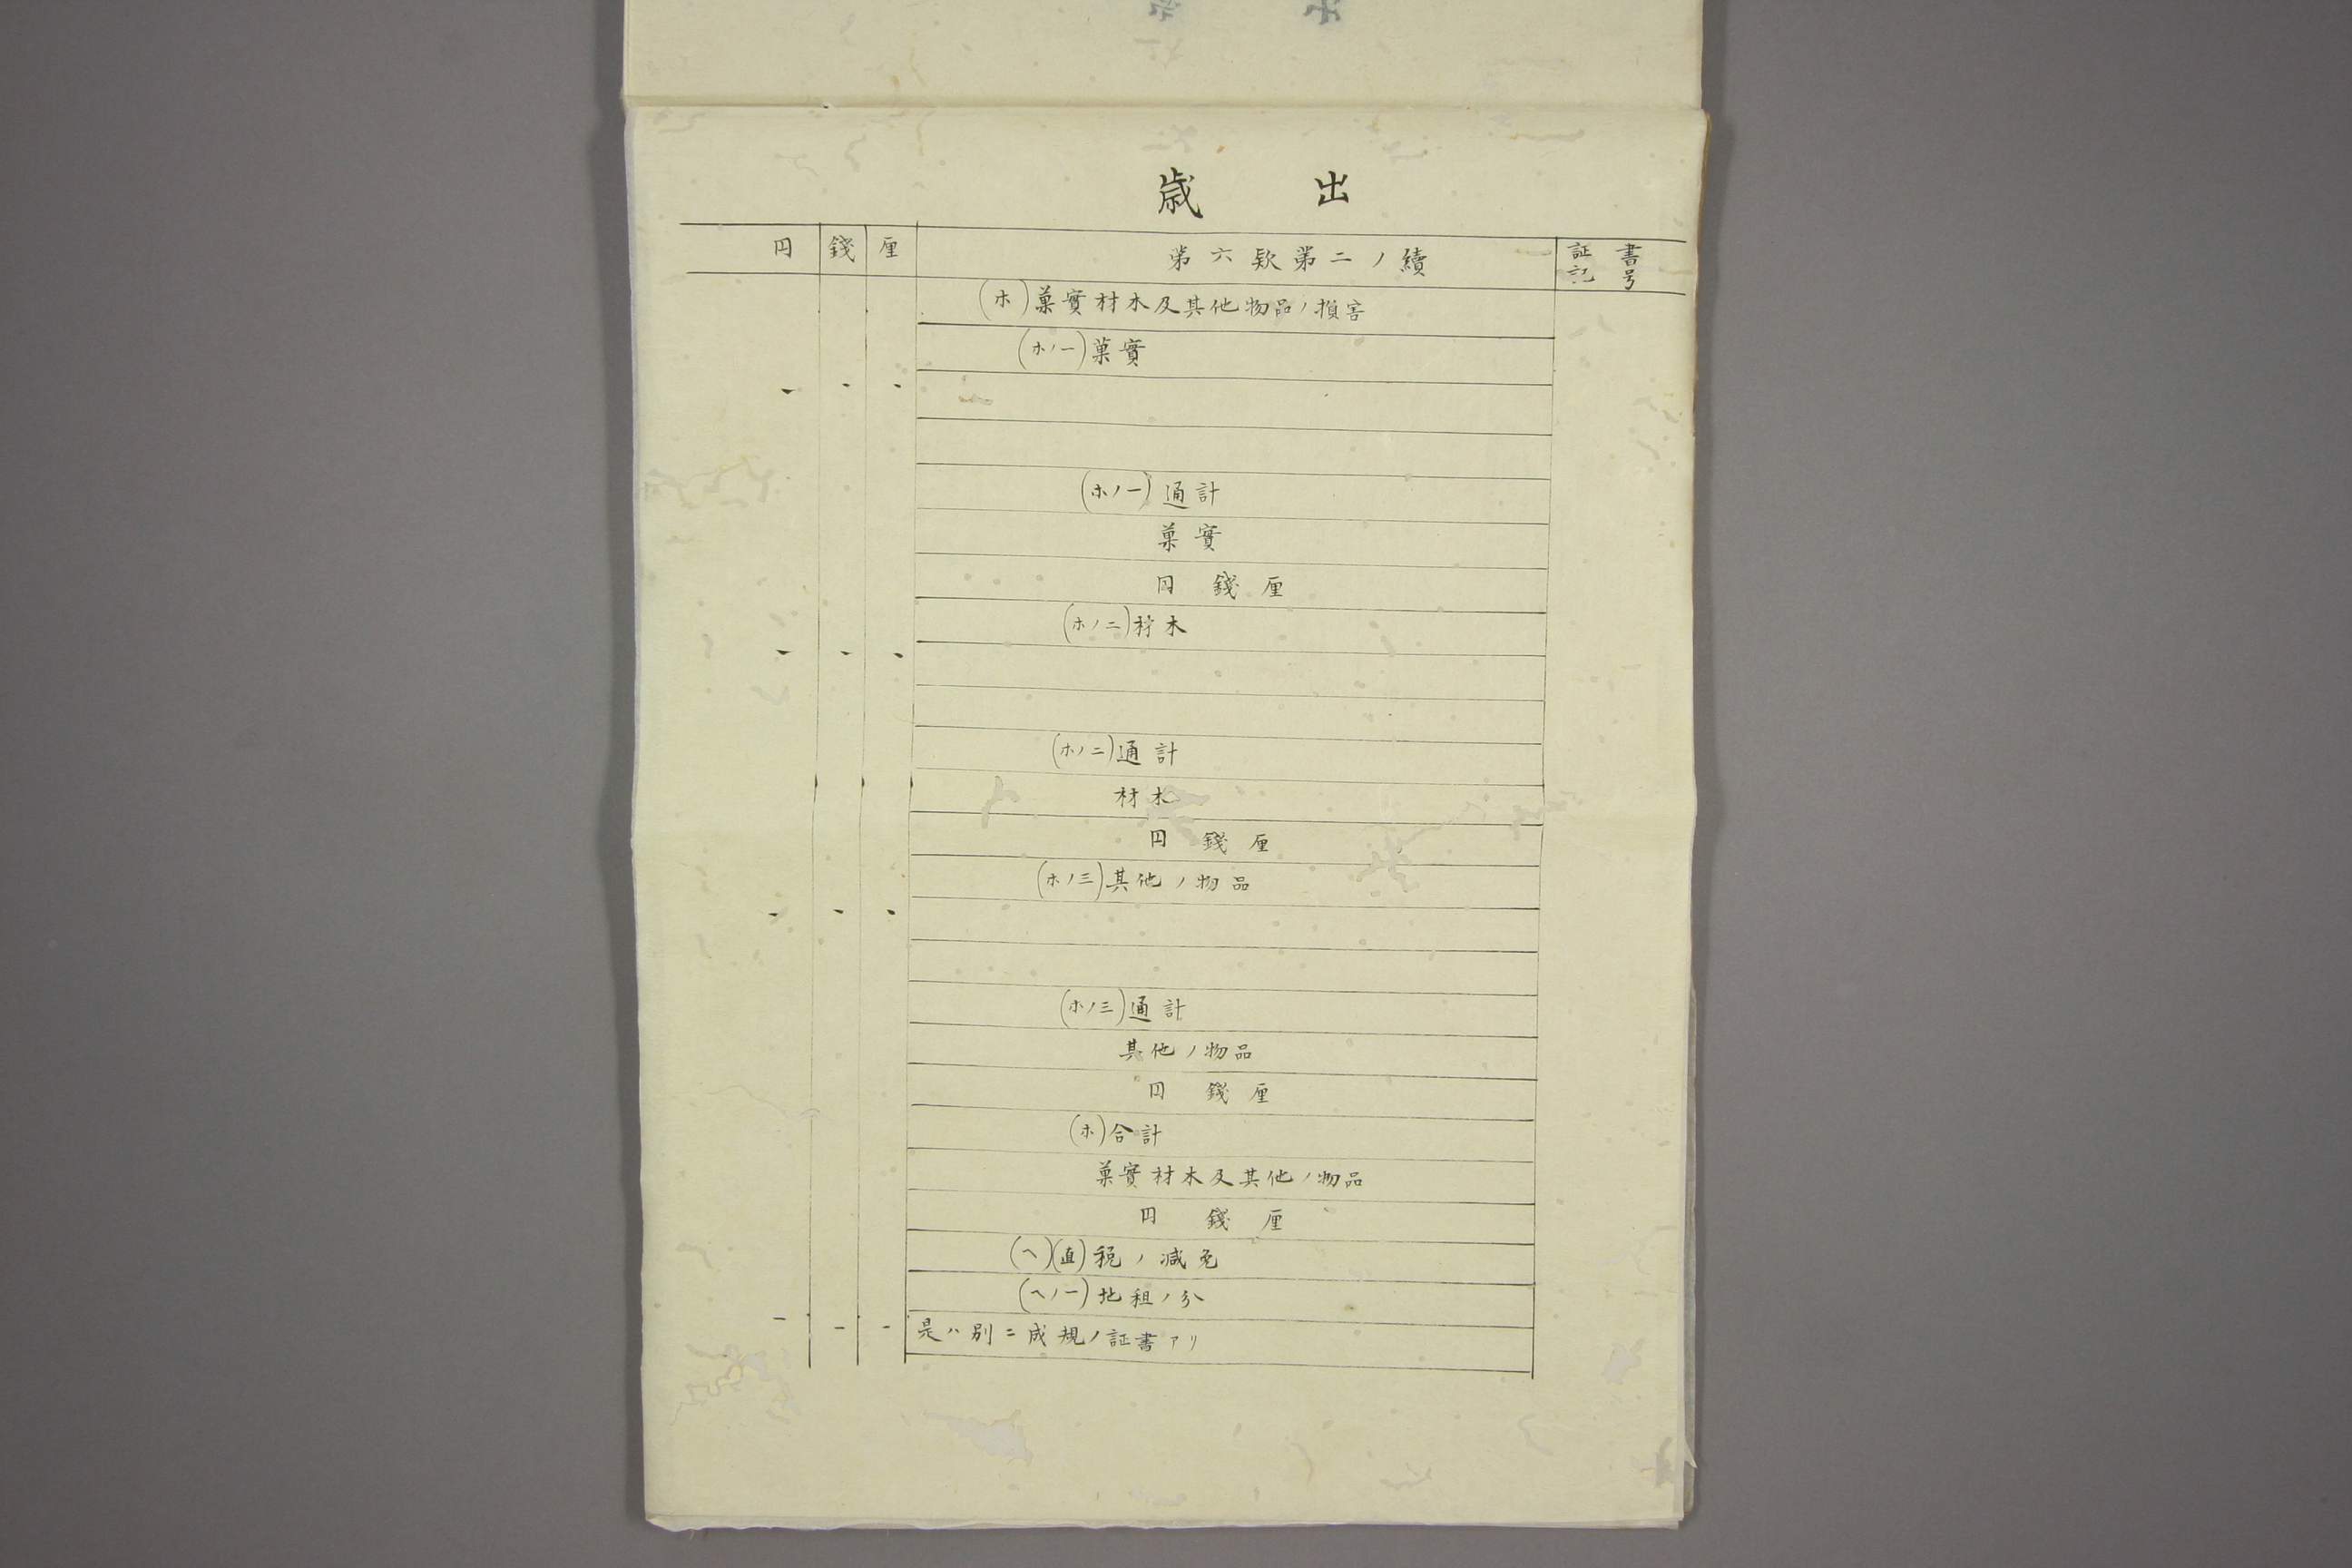 歳出
円 錢 厘 第六款第二ノ續 証書
記号
(ホ)菓實材木及其他物品ノ損害
(ホノ一)菓實
(ホノ一)通計
菓實
円 錢 厘
(ホノ二)材木
(ホノ二)通計
材木
円 錢 厘
(ホノ三)其他ノ物品
(ホノ三)通計
其他ノ物品
円 錢 厘
(ホ)合計
菓實材木及其他ノ物品
円 錢 厘
(ヘ)(直)税ノ減免
(ヘノ一)地租ノ分
是ハ別ニ成規ノ証書アリ